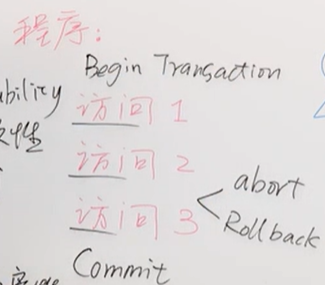 程序：
Begin Transaction
ability
访问 1
访问 2
访问 3
abort
Rollback
Commit